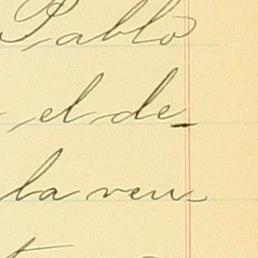 Pablo
el de
la ven-